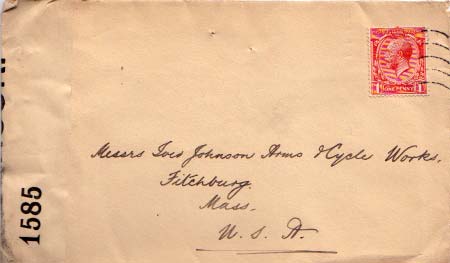 ONE PENNY
1 1
Messrs Iver Johnson Arms & Cycle Works.
Fitchburg.
Mass.
U. S. A.
1585